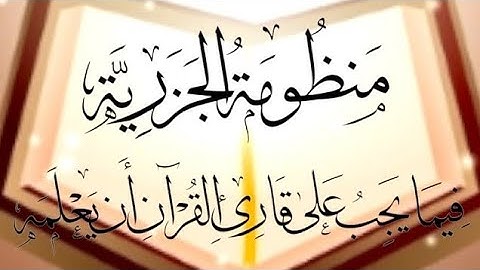 مَنظُومَةُ الجَزَرِيَّة
فِيمَا يَجِبُ عَلَى قَارِئِ القُرآنِ أَن يَعْلَمَه